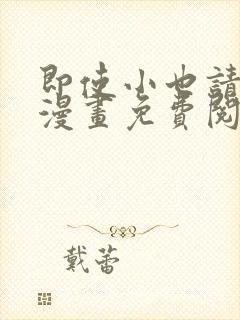 即使小也請
漫畫免費閱
戴蕾